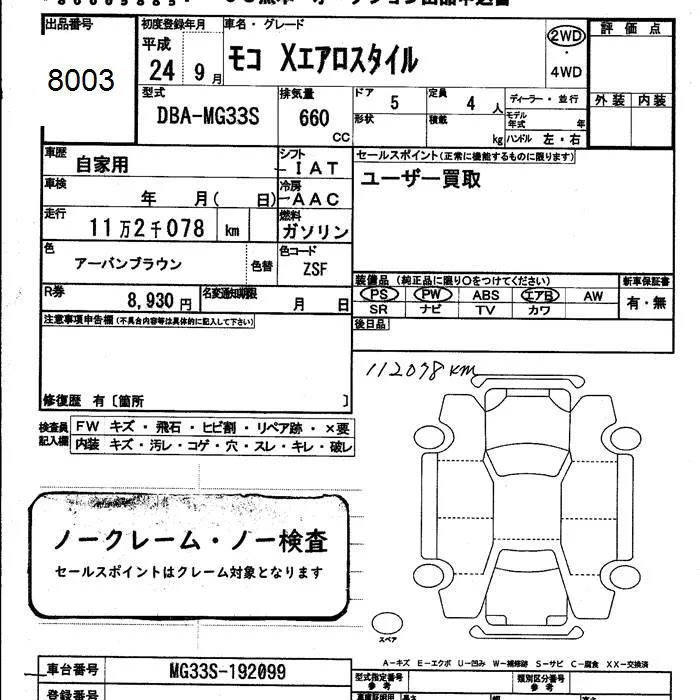 出品番号
8003
初度登録年月
平成
24 9月
車名・グレード
モコ Xエアロスタイル
2WD
・
4WD
評価点
外装 内装
型式
DBA-MG33S
排気量
660
CC
ドア
5
定員
4 人
ディーラー・並行
形状
積載
kg
モデル年式 年
ハンドル 左・右
車歴
自家用
シフト
IAT
セールスポイント(正常に機能するものに限ります)
ユーザー買取
車検
年 月( 日)
冷房
AAC
走行
11万2千078 km
燃料
ガソリン
色
アーバンブラウン
色替
色コード
ZSF
装備品 (純正品に限り○をつけてください)
新車保証書
PS PW ABS エアB AW
有・無
SR ナビ TV カワ
R券
8,930円
名変通知期限
月 日
後日品
注意事項申告欄(不具合内容等は具体的に記入して下さい)
112078km
修復歴 有〔箇所 〕
検査員
記入欄
FW キズ・飛石・ヒビ割・リペア跡・×要
内装 キズ・汚レ・コゲ・穴・スレ・キレ・破レ
ノークレーム・ノー検査
セールスポイントはクレーム対象となります
スペア
A-キズ E-エクボ U-凹み W-補修跡 S-サビ C-腐食 XX-交換済
車台番号
MG33S-192099
型式指定番号
参考
類別区分番号
参考
登録番号